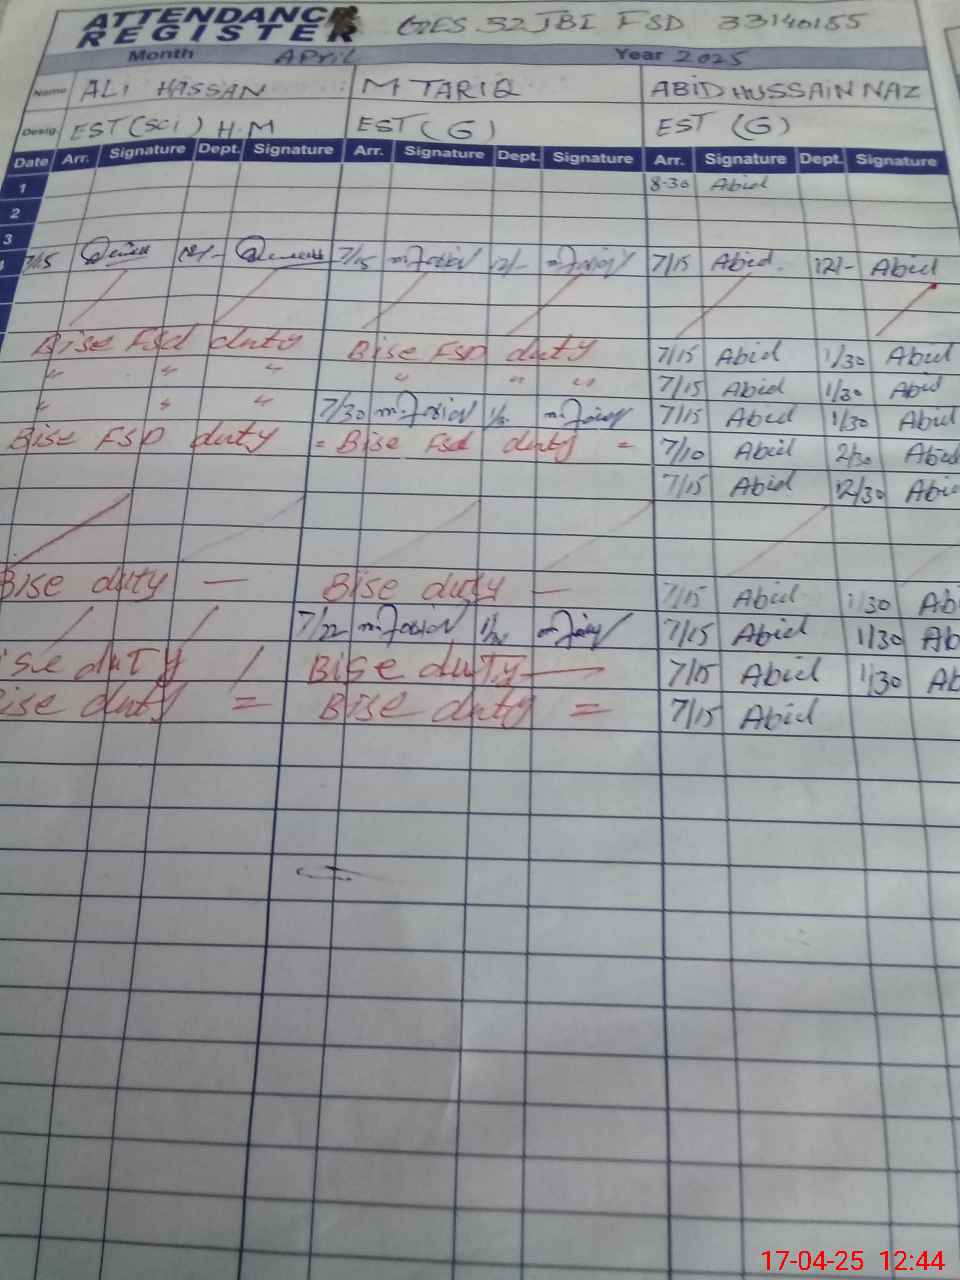 ATTENDANCE GES 32 JBI FSD 33140155
REGISTER
Month April Year 2025
Name ALI HASSAN M TARIQ ABID HUSSAIN NAZ
Desig. EST (SCI) H.M EST (G) EST (G)
Date Arr. Signature Dept. Signature Arr. Signature Dept. Signature Arr. Signature Dept. Signature
1 8-30 Abid
2
3
7/15 12/- 7/15 12/- 7/15 Abid 12/- Abid
Bise Fsd duty Bise FSD duty 7/15 Abid 1/30 Abid
" " " " " " 7/15 Abid 1/30 Abid
" " " 7/30 7/15 Abid 1/30 Abid
Bise FSD duty = Bise Fsd duty = 7/10 Abid 2/30 Abid
7/15 Abid 12/30 Abid
Bise duty — Bise duty — 7/15 Abid 1/30 Ab
7/22 7/15 Abid 1/30 Ab
ise duty / Bise duty — 7/15 Abid 1/30 Ab
ise duty = Bise duty = 7/15 Abid
17-04-25 12:44